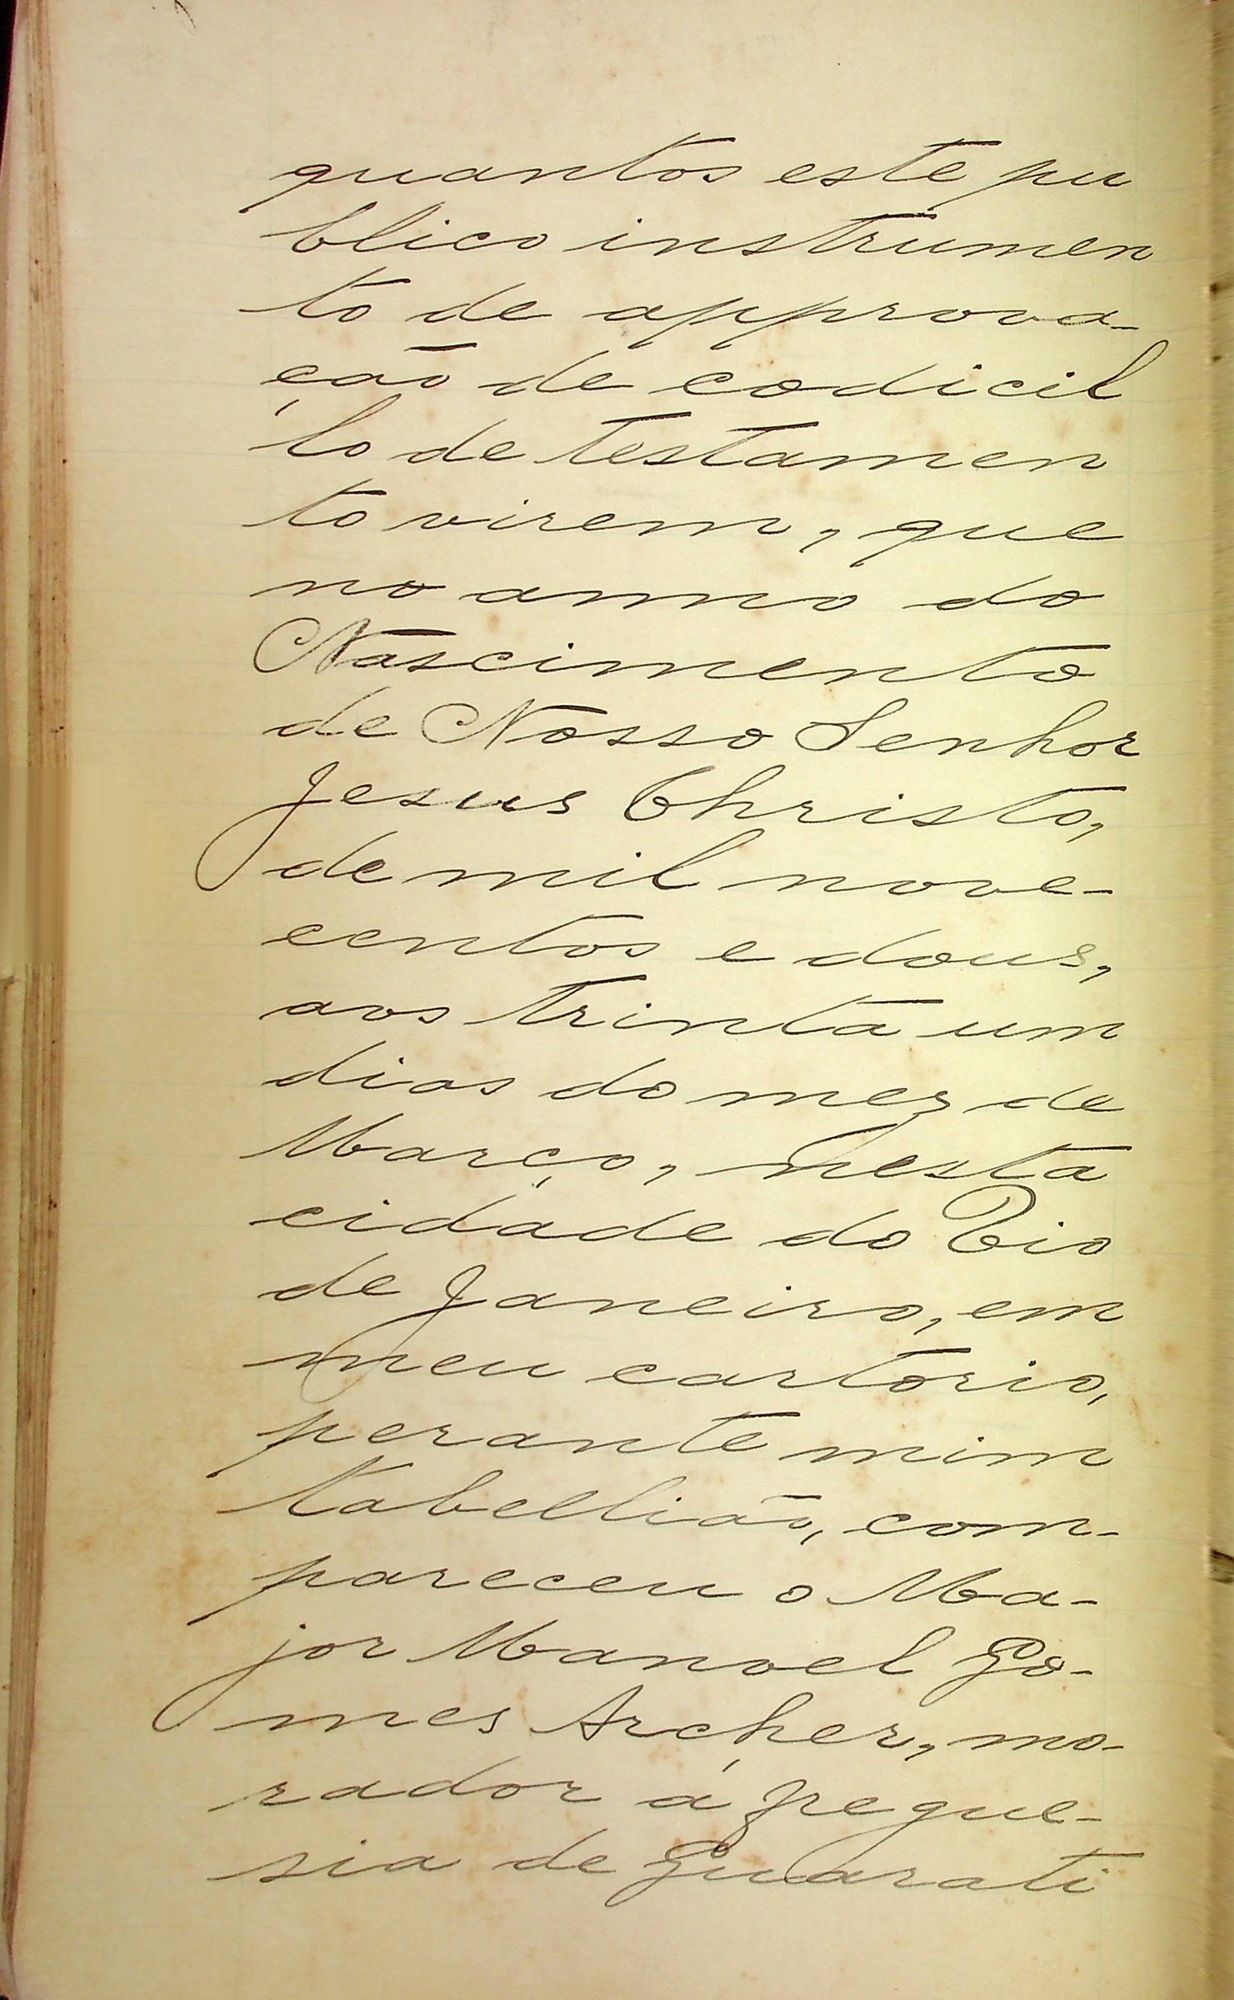 quantos este pu
blico instrumen
to de approva-
ção de codicil
lo de testamen
to virem, que
no anno do
Nascimento
de Nosso Senhor
Jesus Christo,
de mil nove-
centos e dous,
aos trinta um
dias do mez de
Março, nesta
cidade do Rio
de Janeiro, em
meu cartorio,
perante mim
tabellião, com-
pareceu o Ma-
jor Manoel Go-
mes Archer, mo-
rador á fregue-
sia de Guarati